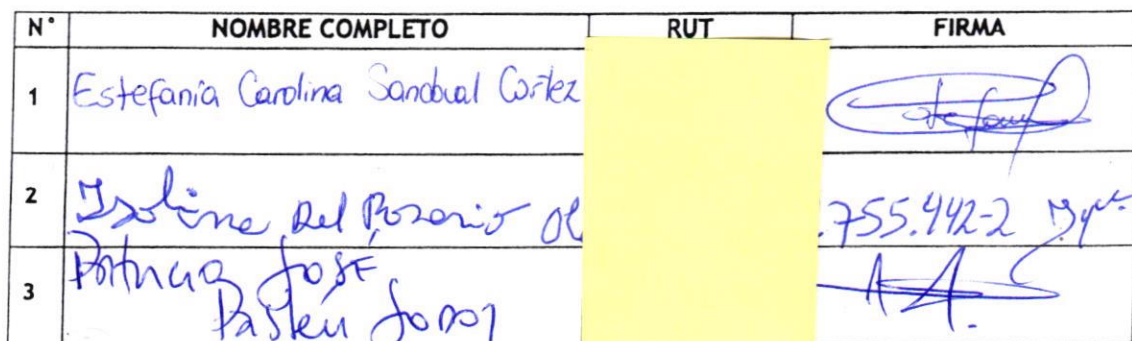 N° NOMBRE COMPLETO RUT FIRMA
1 Estefanía Carolina Sandoval Cortez
2 Isolina Del Rosario Ol .755.442-2
3 Patricia José
Pastén Godoy